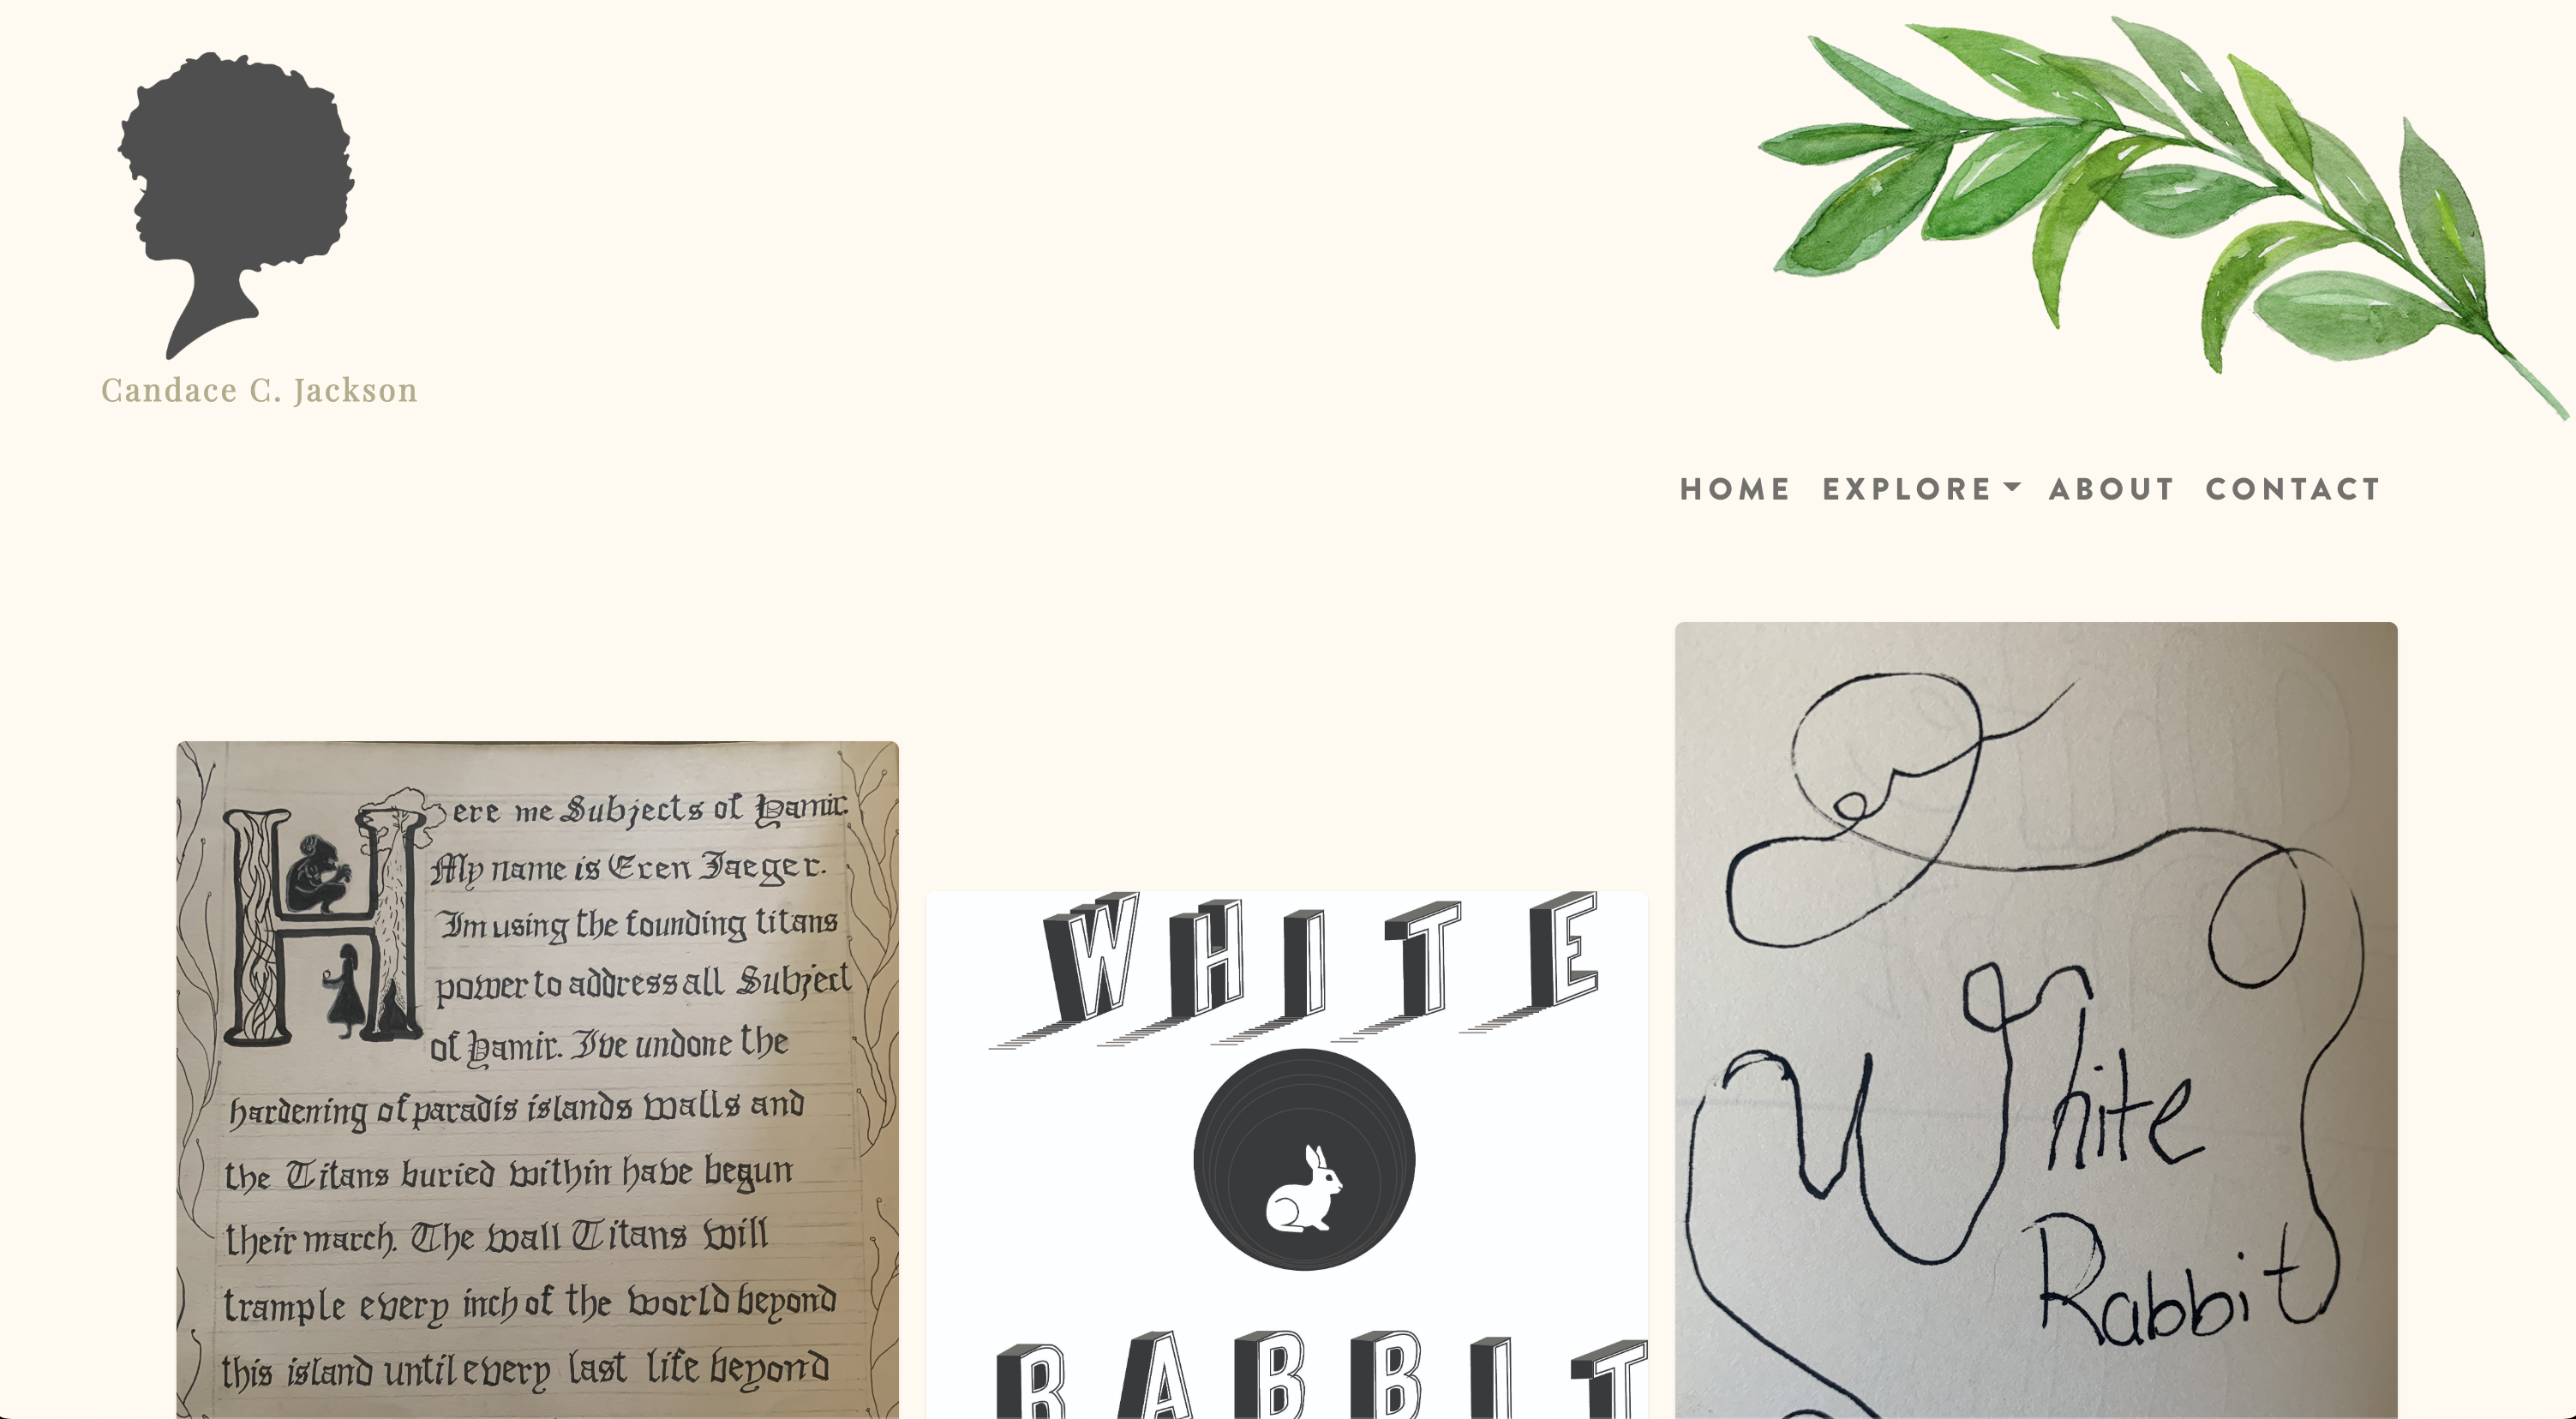 Candace C. Jackson
HOME EXPLORE ABOUT CONTACT
Here me Subjects of Yamir.
My name is Eren Jaeger.
Im using the founding titans
power to address all Subject
of Yamir. Ive undone the
hardening of paradis islands walls and
the Titans buried within have begun
their march. The wall Titans will
trample every inch of the world beyond
this island until every last life beyond
WHITE
RABBIT
White
Rabbit